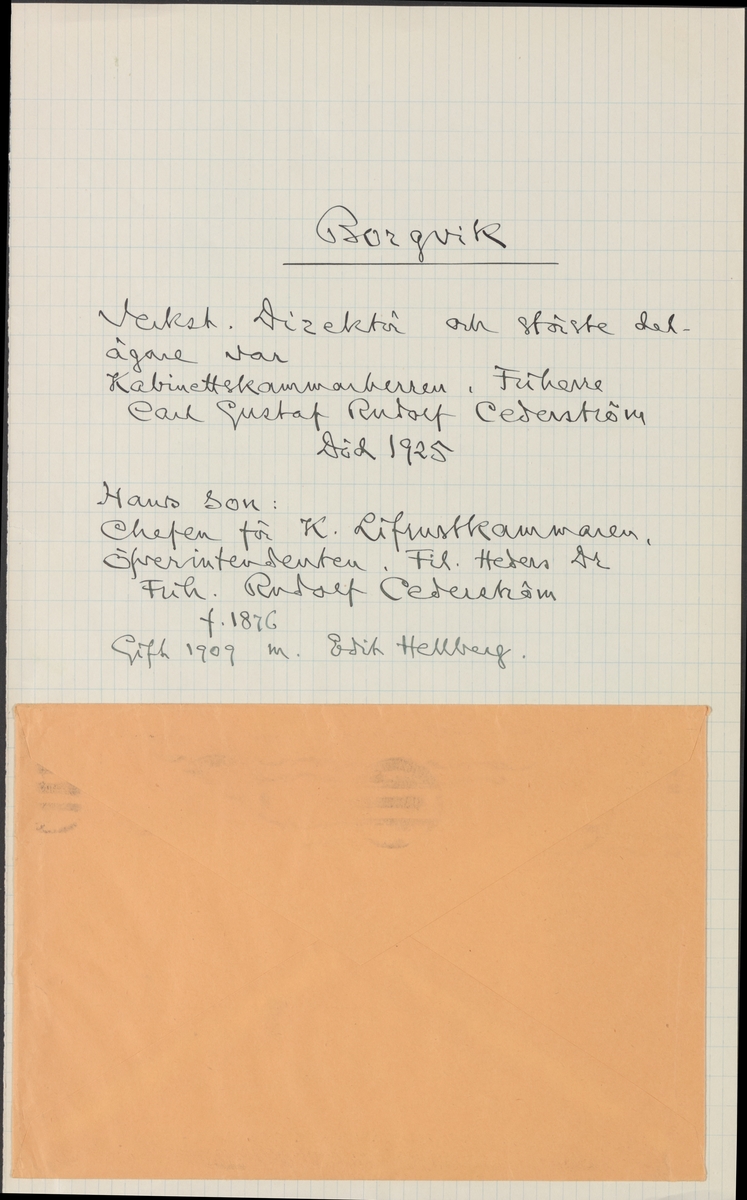 Borgvik
Verkst. Direktör och störste del-
ägare var
Kabinettskammarherren, Friherre
Carl Gustaf Rudolf Cederström
Död 1925
Hans son:
Chefen för K. Lifrustkammaren,
Öfverintendenten, Fil. Heders Dr
Frih. Rudolf Cederström
f. 1876
Gift 1909 m. Edit Hellberg.